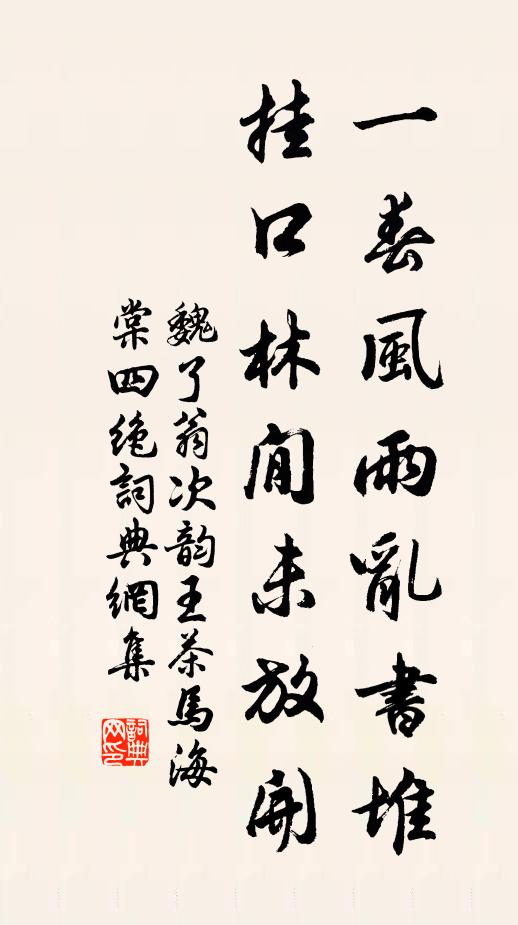 一春風雨亂書堆
挂口林間未放開
魏了翁次韵王茶馬海
棠四絶詞典網集
詞典
网印